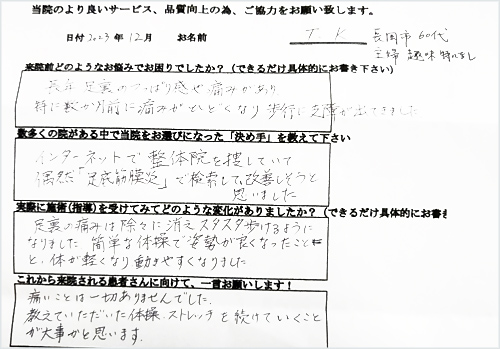 当院のより良いサービス、品質向上の為、ご協力をお願い致します。
日付 2023年 12月 お名前 T K 長岡市 60代
主婦 趣味 特になし
来院前どのようなお悩みでお困りでしたか？（できるだけ具体的にお書き下さい）
長年 足裏のつっぱり感や痛みがあり
特に数か月前に痛みがひどくなり 歩行に支障が出てきました
数多くの院がある中で当院をお選びになった「決め手」を教えて下さい
インターネットで整体院を捜していて
偶然「足底筋膜炎」で検索して改善しそうと
思いました
実際に施術(指導)を受けてみてどのような変化がありましたか？（できるだけ具体的にお書き
足裏の痛みは除々に消え スタスタ歩けるように
なりました 簡単な体操で姿勢が良くなったこと
と、体が軽くなり動きやすくなりました
これから来院される患者さんに向けて、一言お願いします！
痛いことは一切ありませんでした。
教えていただいた体操、ストレッチを続けていくこと
が大事かと思います.